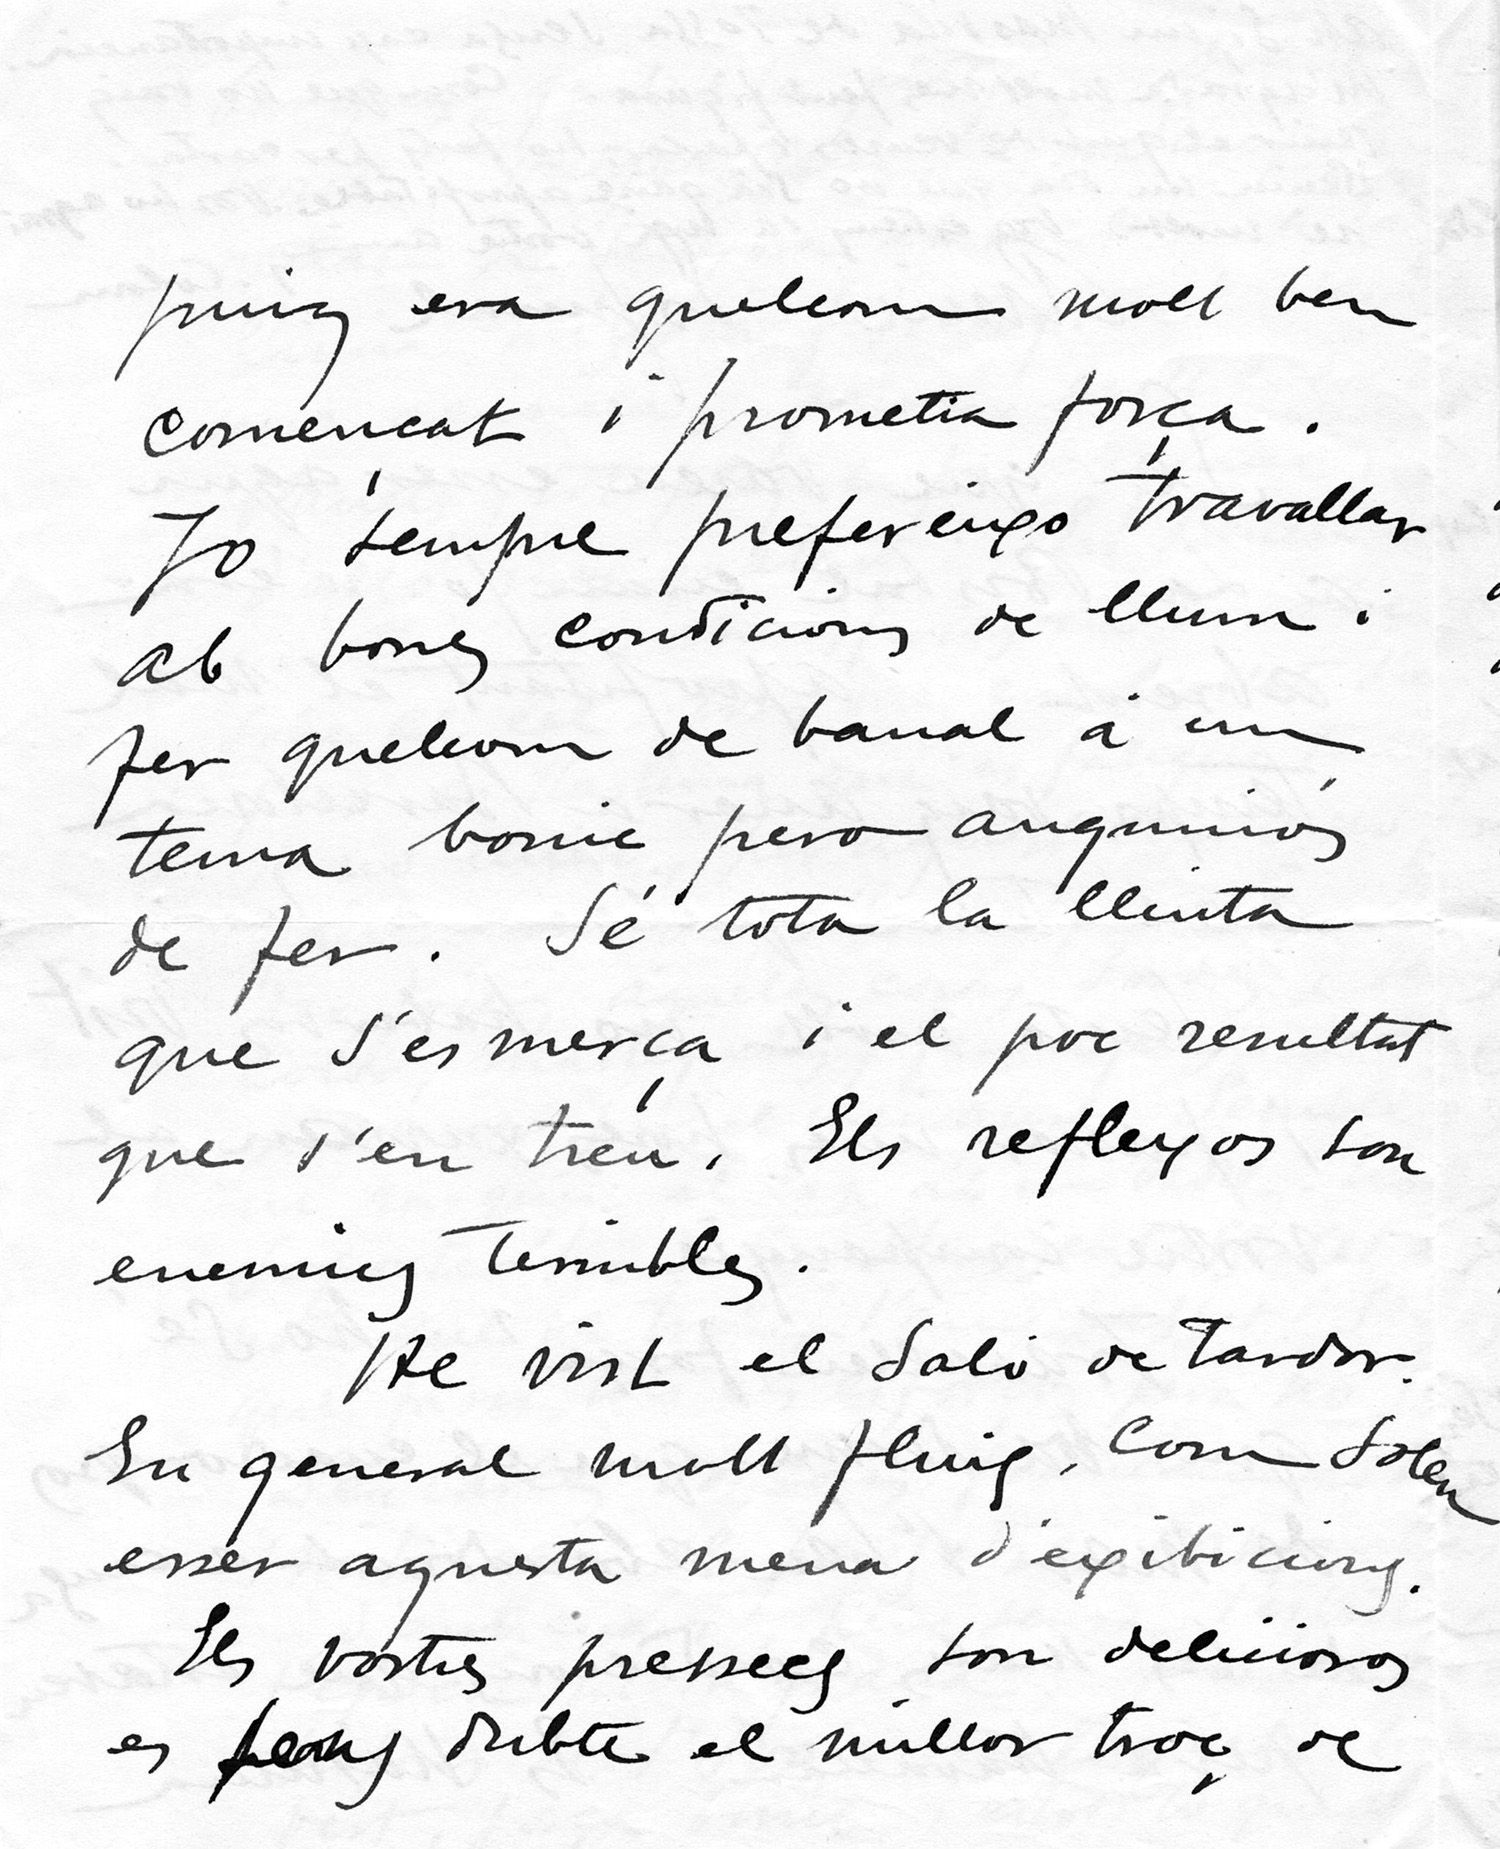 puig era quelcom molt ben
començat i prometia força.
Jo sempre prefereixo travallar
ab bones condicions de llum i
fer quelcom de banal á un
tema bonic pero anguniós
de fer. Sé tota la llinta
que s'esmerça i el poc resultat
que s'en treu. Els reflexos son
enemics terribles.
He vist el Saló de Tardor.
En general molt fluig, com solen
esser aquesta mena d'exibicions.
Els vostres pressecs son deliciosos
es sens dubte el millor troç de